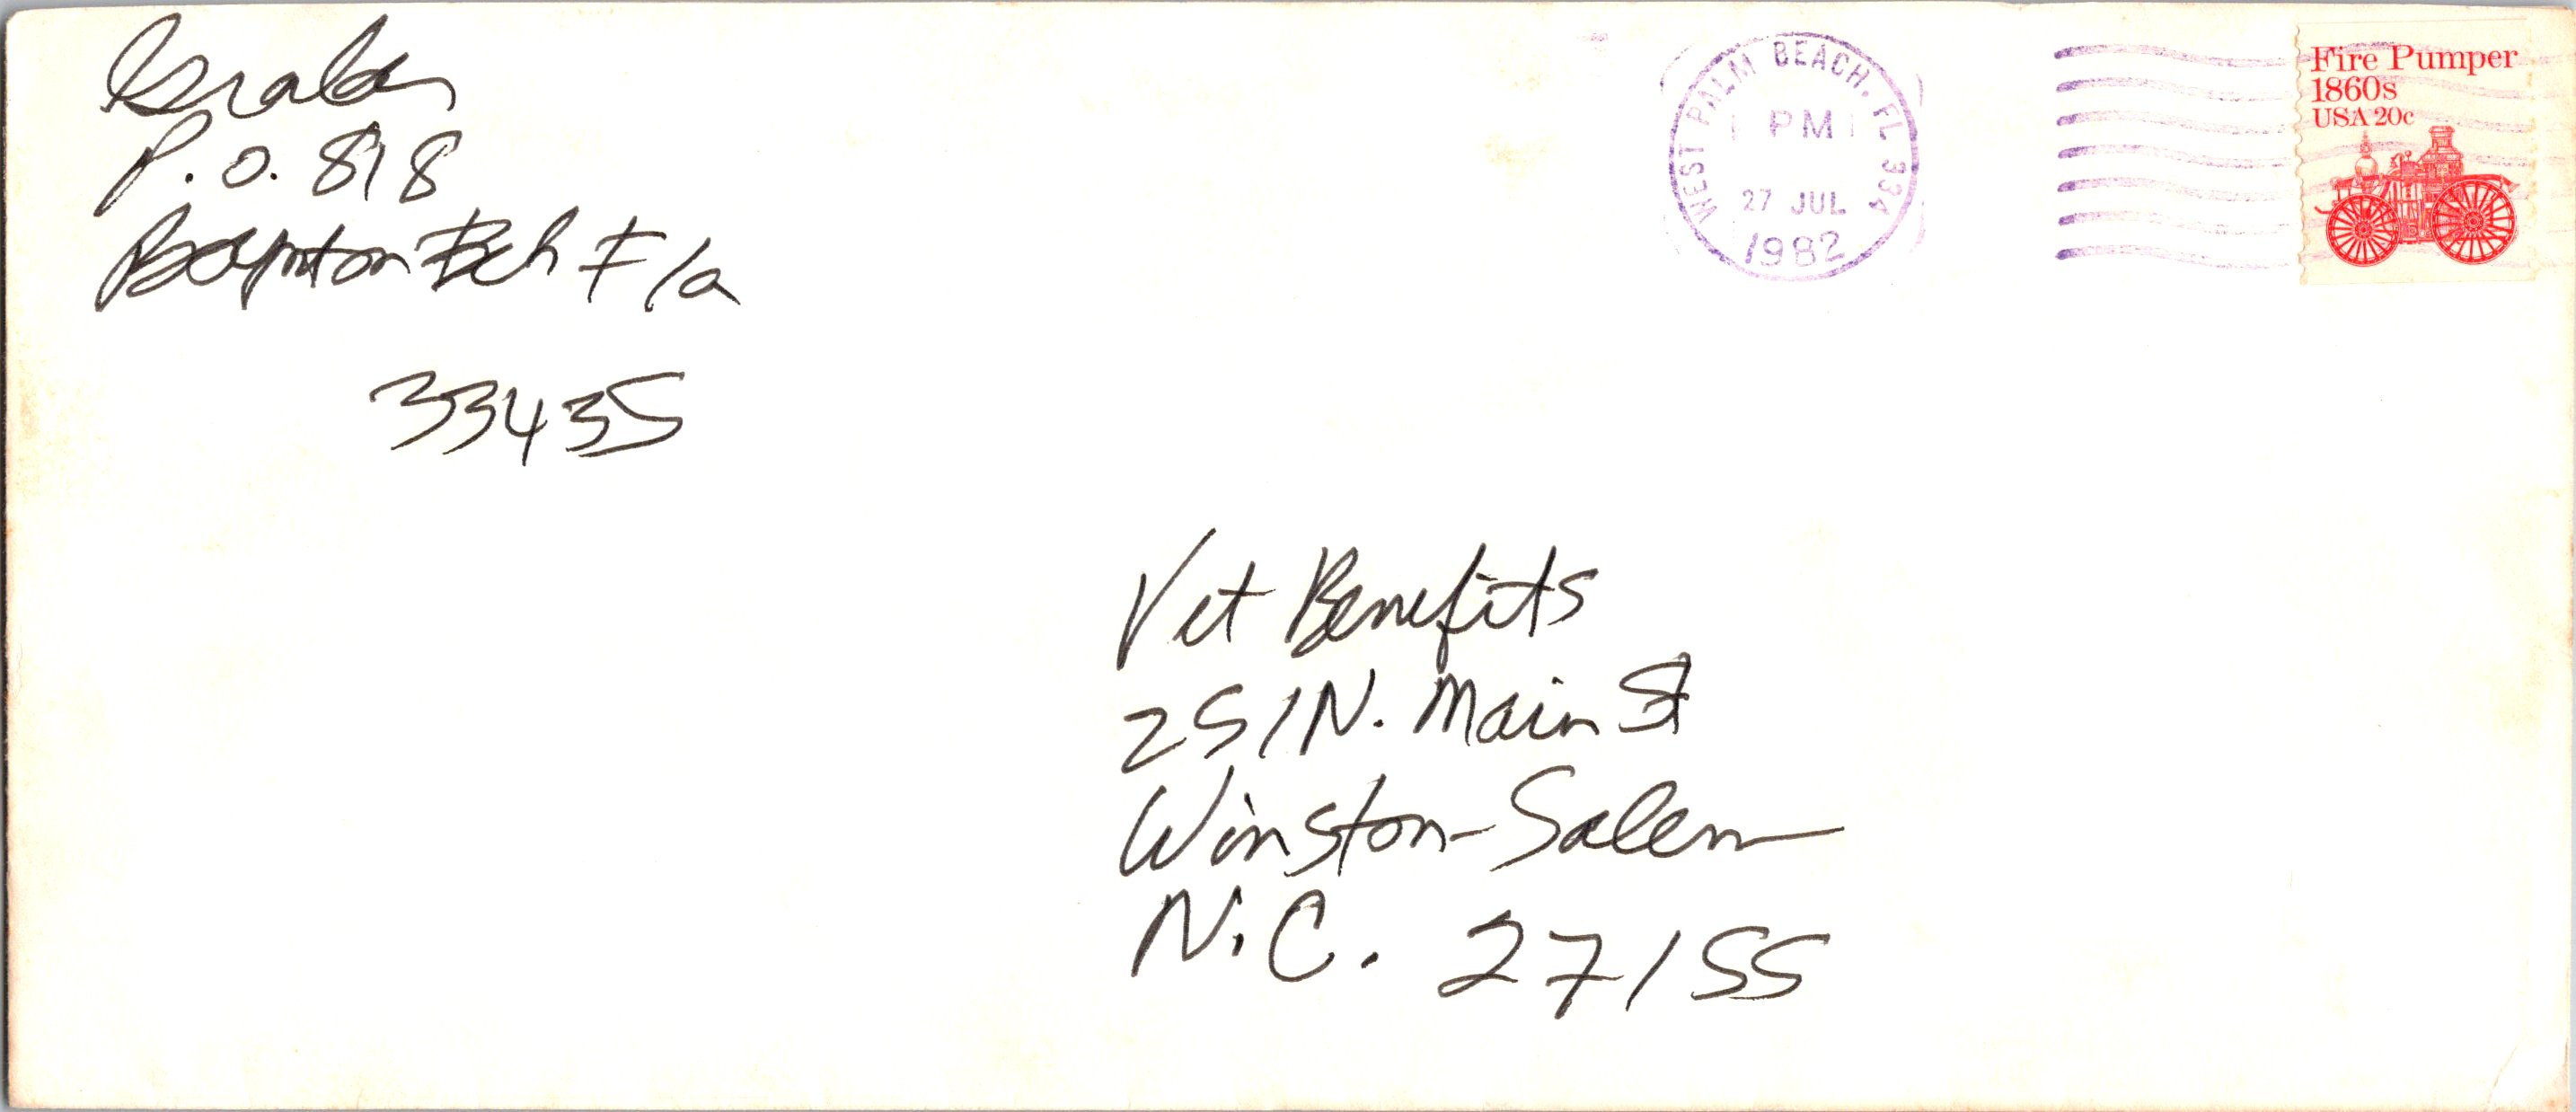 P.O. 818
Boynton Bch Fla
33435
WEST PALM BEACH, FL 334
PM
27 JUL
1982
Fire Pumper
1860s
USA 20c
Vet Benefits
251 N. Main St
Winston-Salem
N.C. 27155